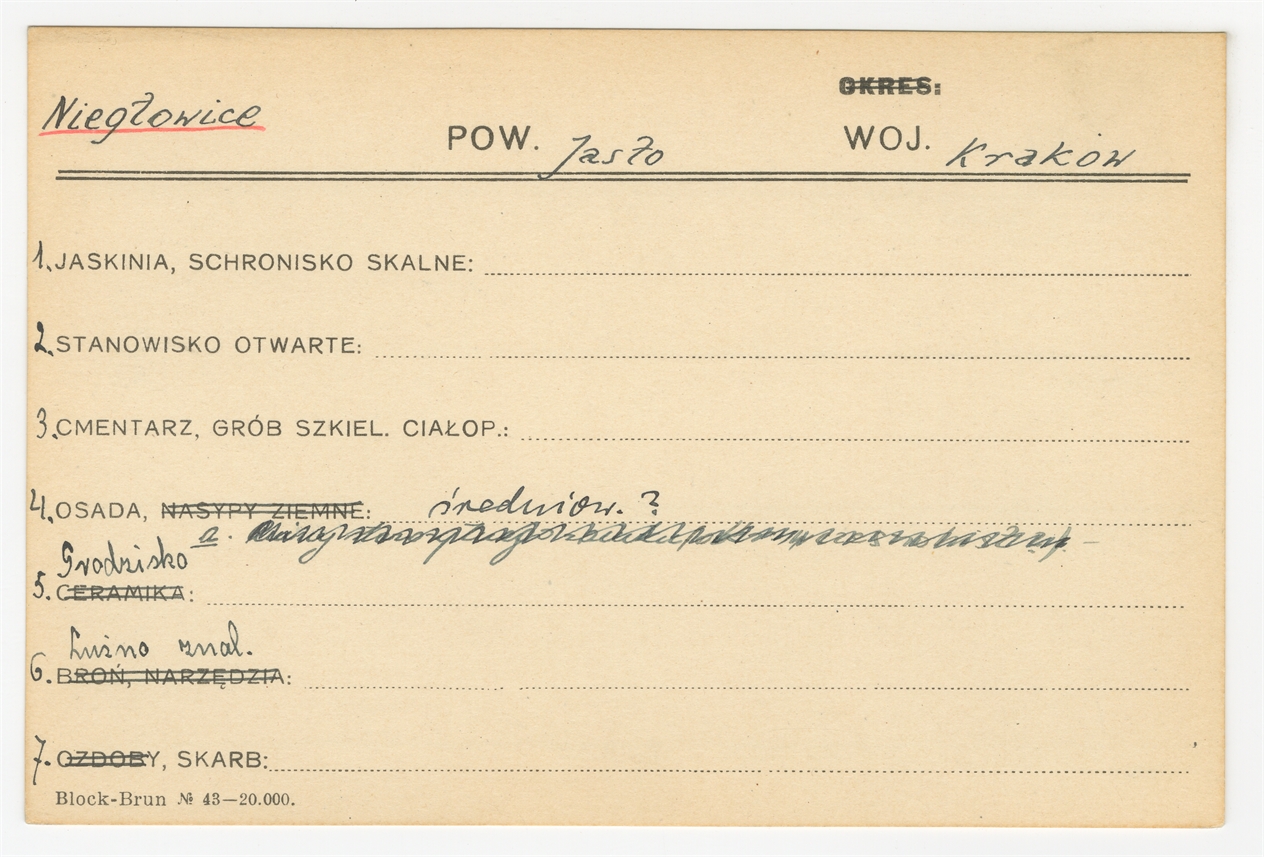 OKRES:
Niegłowice POW. Jasło WOJ. Kraków
1. JASKINIA, SCHRONISKO SKALNE:
2. STANOWISKO OTWARTE:
3. CMENTARZ, GRÓB SZKIEL. CIAŁOP.:
4. OSADA, NASYPY ZIEMNE: średniow. ?
a.
Grodzisko
5. CERAMIKA:
Luźno znal.
6. BROŃ, NARZĘDZIA:
7. OZDOBY, SKARB:
Block-Brun № 43—20.000.